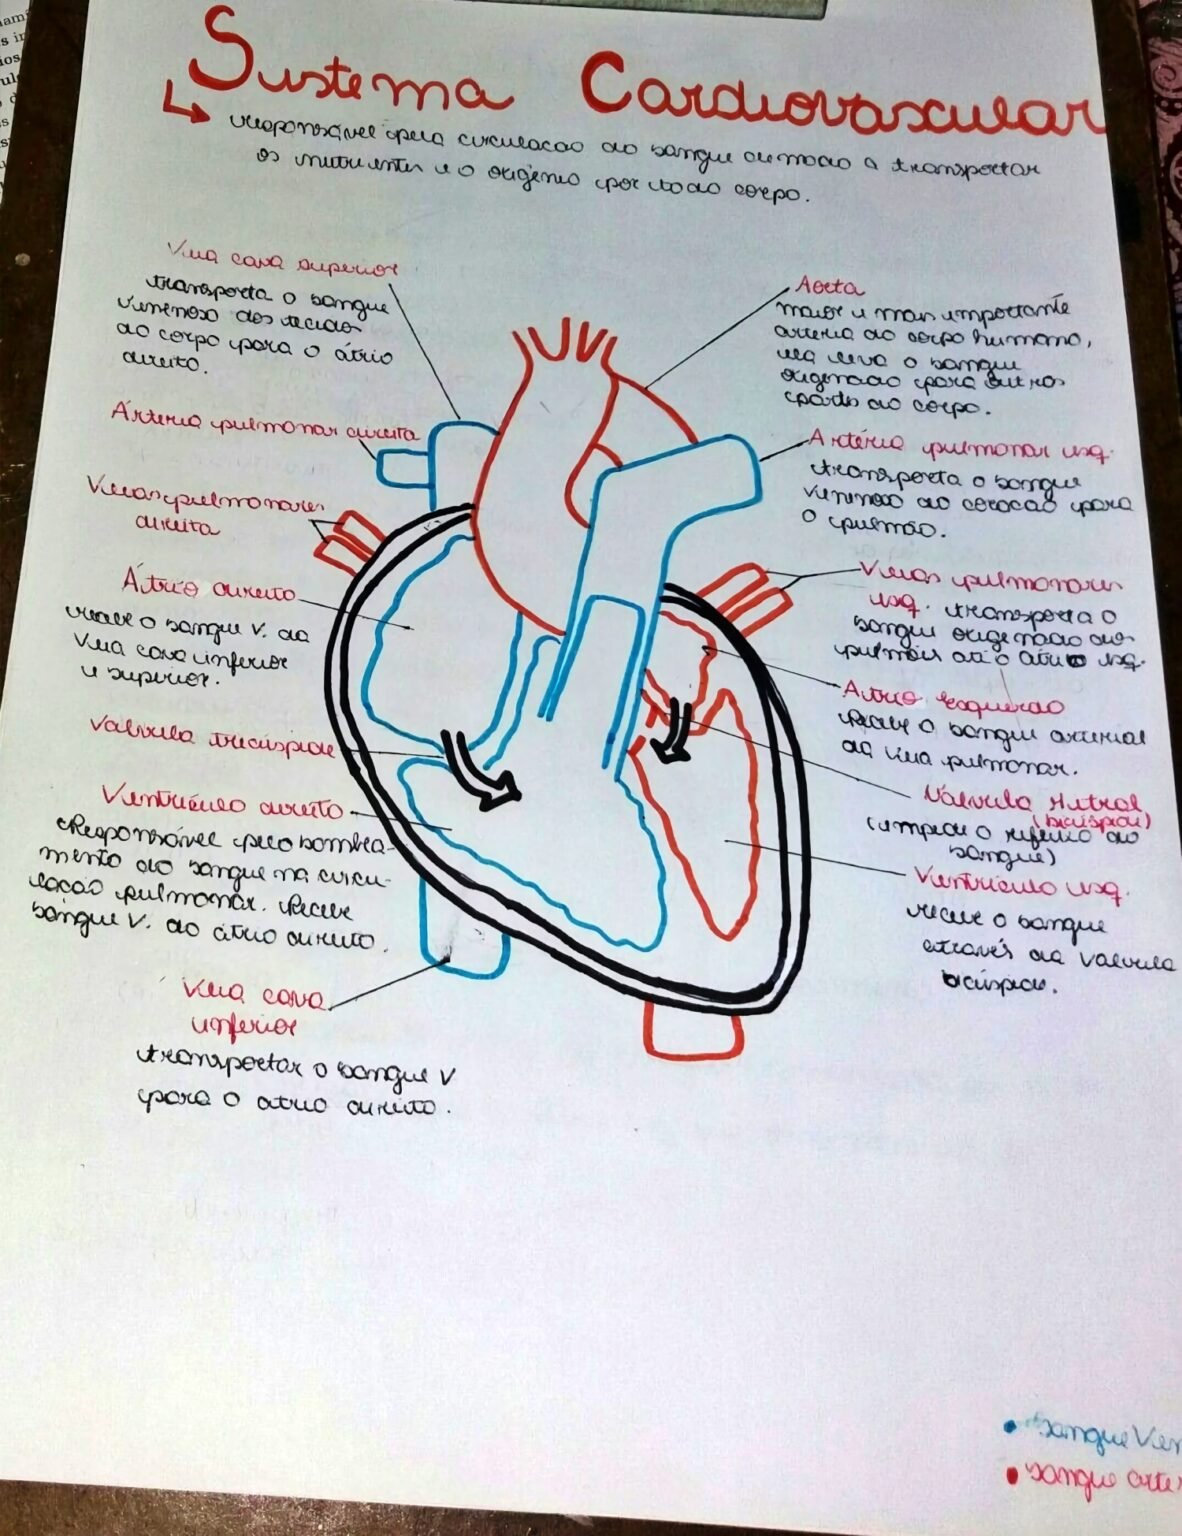 Sistema Cardiovascular
responsável pela circulação do sangue de modo a transportar
os nutrientes e o oxigênio por todo corpo.
Veia cava superior
transporta o sangue
venenoso dos tecidos
do corpo para o átrio
direito.
Ártéria pulmonar direita
Veias pulmonares
direita
Átrio direito
recebe o sangue V. da
Veia cava inferior
e superior.
Valvula tricúspide
Ventrículo direito
Responsável pelo bombea-
mento do sangue na circu-
lação pulmonar. Recebe
sangue V. do átrio direito.
Veia cava
inferior
transportar o sangue V
para o atrio direito.
Aorta
maior e mais importante
artéria do corpo humano,
ela leva o sangue
oxigenado para outros
partes do corpo.
Artéria pulmonar esq.
transporta o sangue
venenoso do coração para
o pulmão.
Veias pulmonares
esq. transporta o
sangue oxigenado dos
pulmões até o átrio esq.
Atrio esquerdo
Recebe o sangue arterial
da veia pulmonar.
Válvula Mitral
(bicúspide)
(impede o refluxo do
sangue)
Ventrículo esq.
recebe o sangue
através da valvula
bicúspide.
sangue Ven
sangue arte